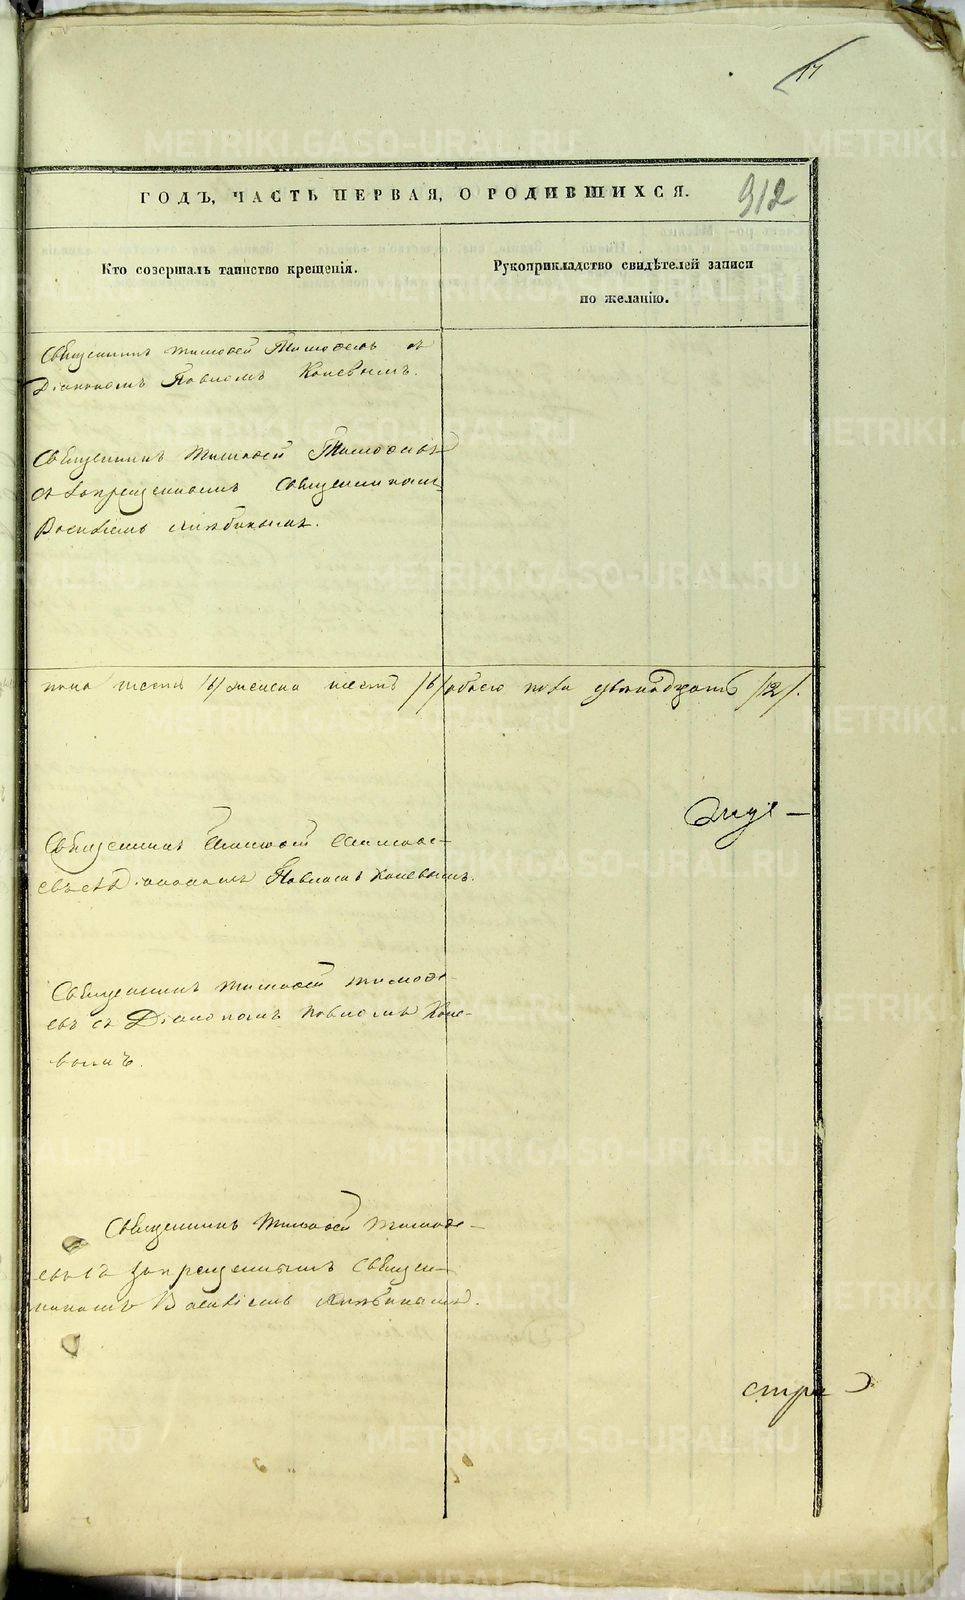 17
912
ГОДЪ, ЧАСТЬ ПЕРВАЯ, О РОДИВШИХСЯ.
Кто совершалъ таинство крещенія.
Рукоприкладство свидѣтелей записи
по желанію.
Священникъ Тимофей Тимофеевъ съ
Діакономъ Павломъ Коневымъ.
Священникъ Тимофей Тимофеевъ
съ запрещеннымъ Священникомъ
Василіемъ
пола шесть /6/ женска шесть /6/ обоего пола двенадцать /12/.
Священникъ Тимофей Тимофе-
евъ съ Діакономъ Павломъ Коневымъ.
Священникъ Тимофей Тимофе-
евъ съ Діакономъ Павломъ Коне-
вымъ.
Священникъ Тимофей Тимофе-
евъ съ запрещеннымъ Священ-
никомъ Василіемъ
METRIKI.GASO-URAL.RU